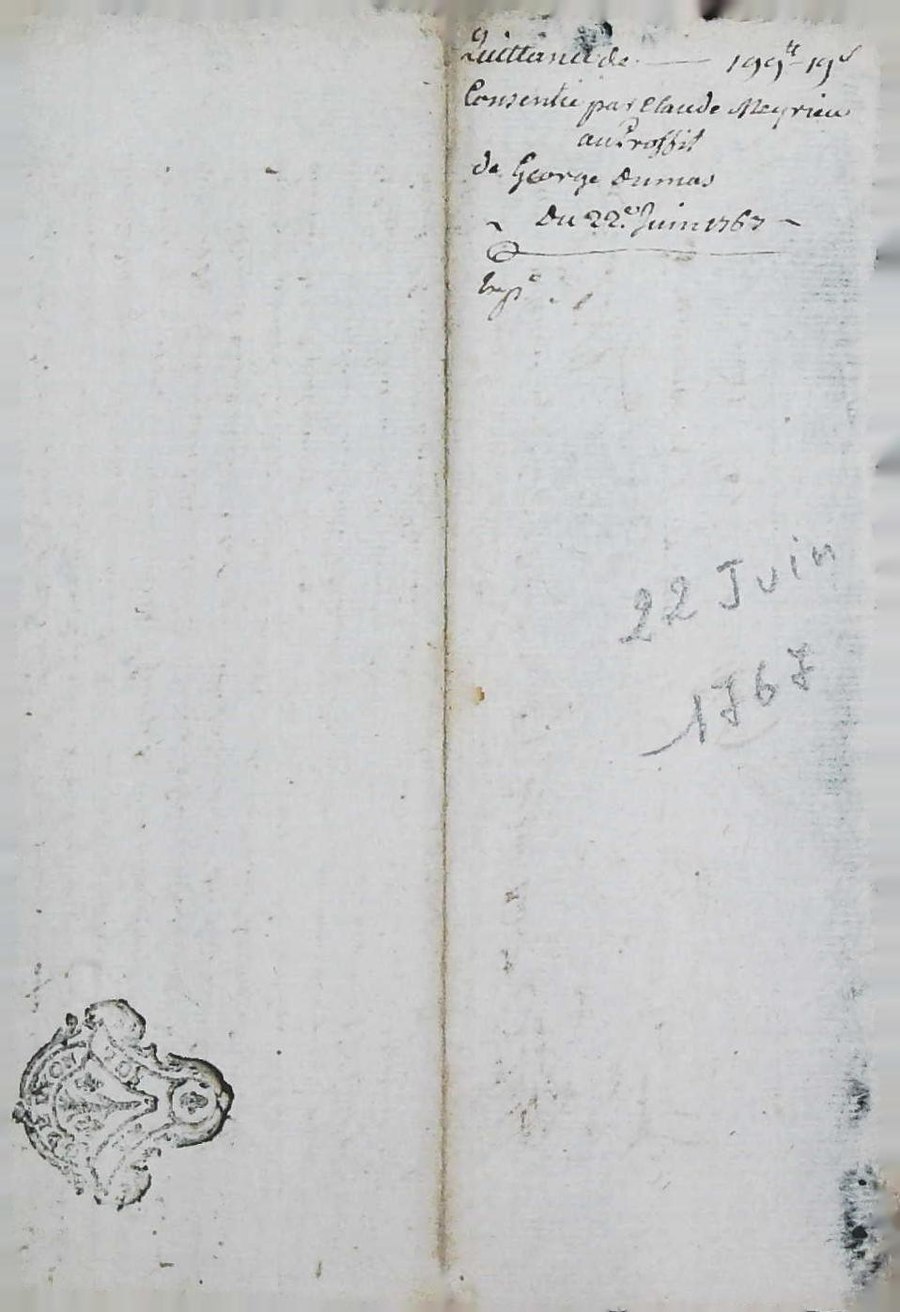 Quittance de — 199tt 19s
Consentie par Claude Meyrieu
au Proffit
de George Dumas
Du 22e. Juin 1767
Expe
22 Juin
1767